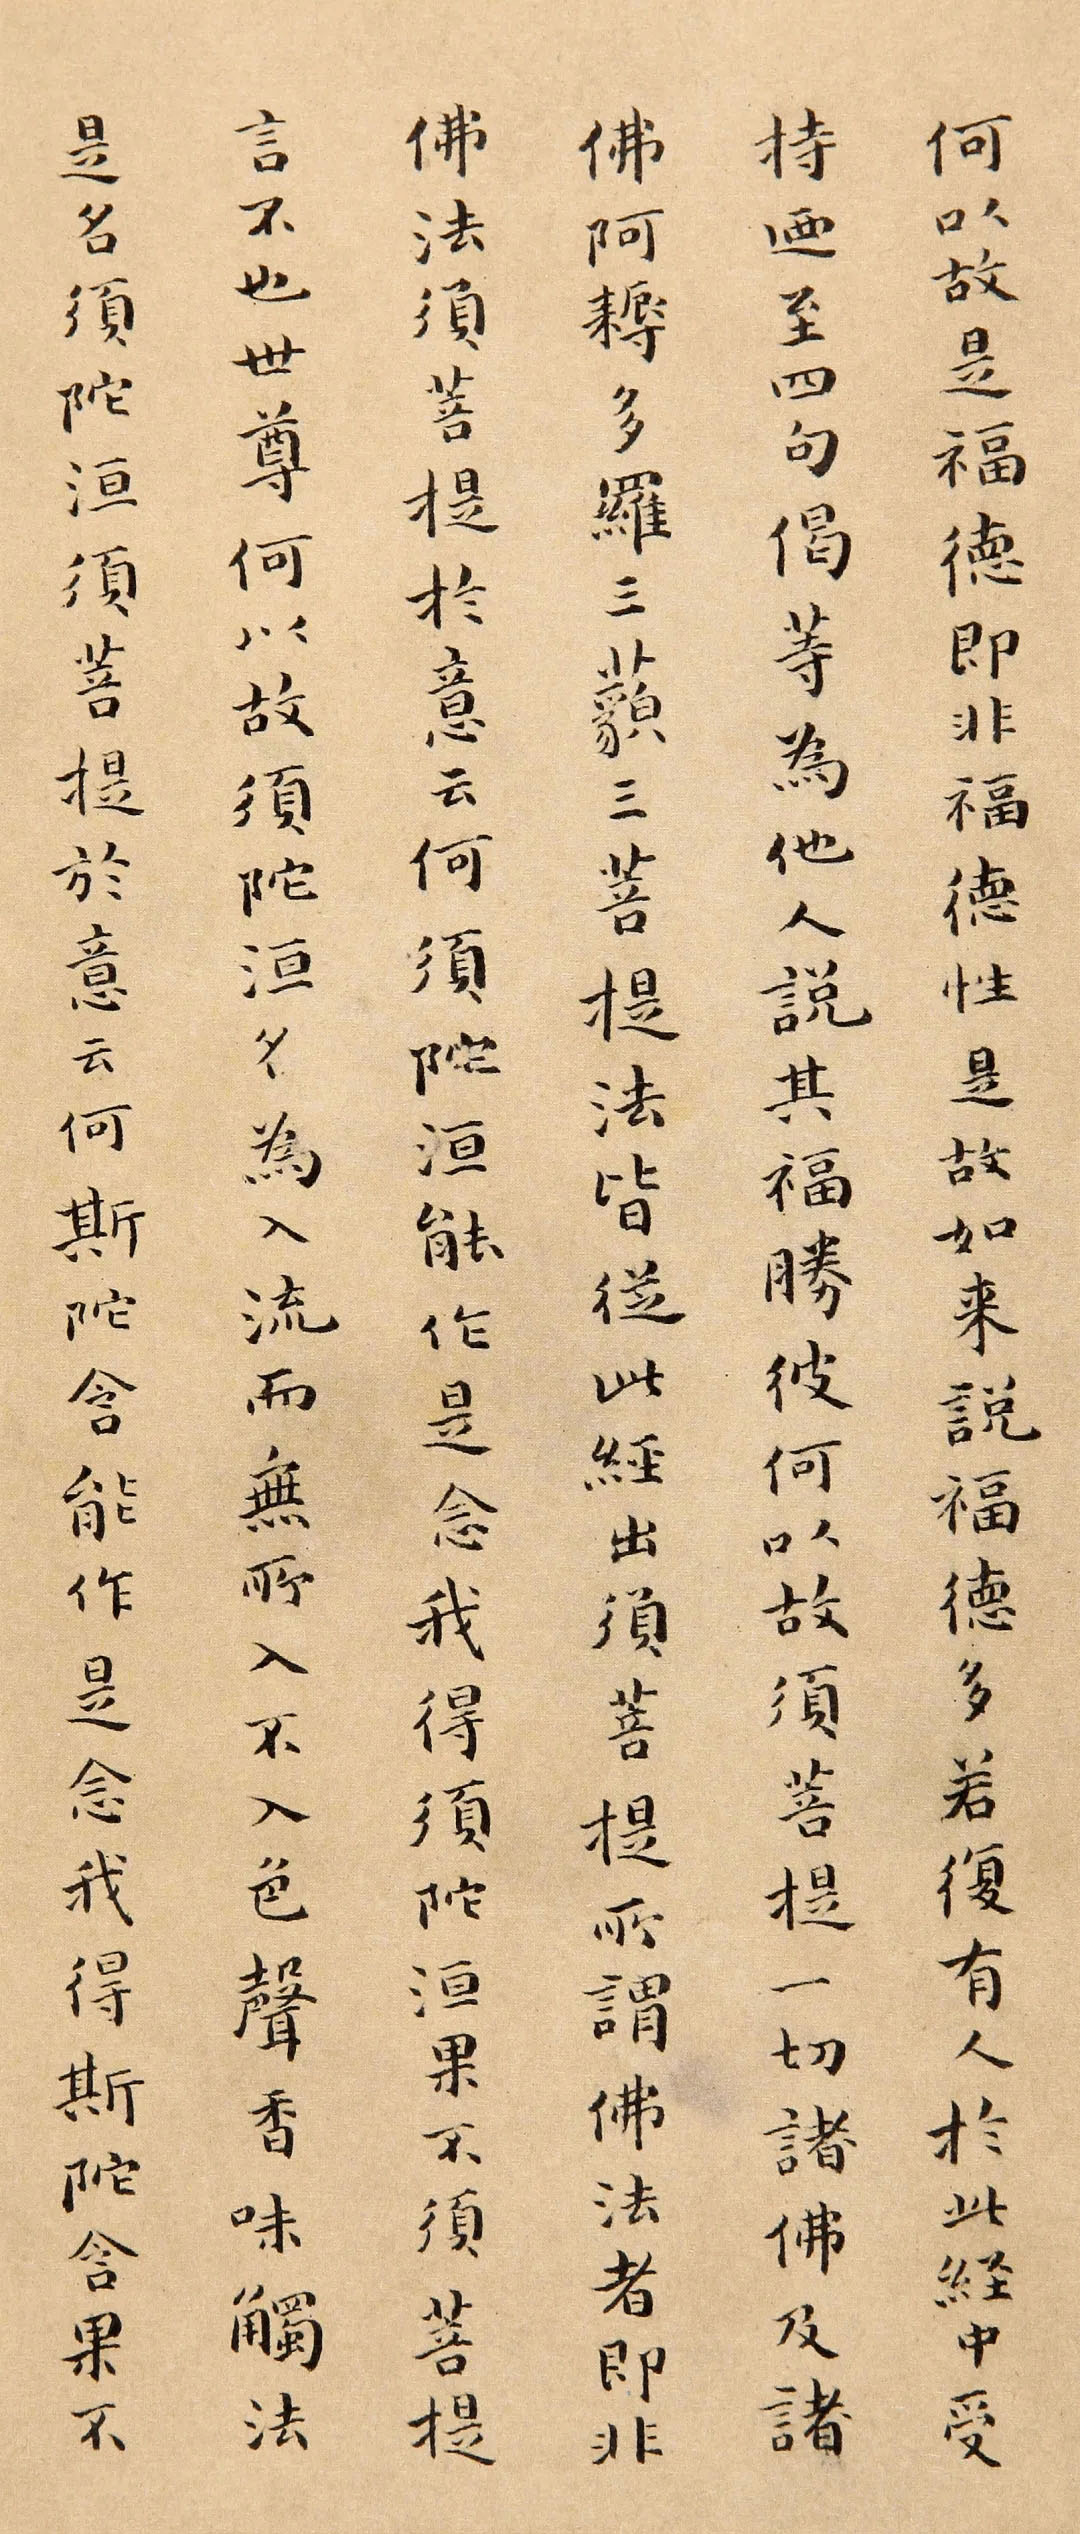 何以故是福德即非福德性是故如来説福德多若復有人於此経中受
持廼至四句偈等為他人説其福勝彼何以故須菩提一切諸佛及諸
佛阿耨多羅三藐三菩提法皆従此經出須菩提所謂佛法者即非
佛法須菩提於意云何須陀洹能作是念我得須陀洹果不須菩提
言不也世尊何以故須陀洹名為入流而無所入不入色聲香味觸法
是名須陀洹須菩提於意云何斯陀含能作是念我得斯陀含果不